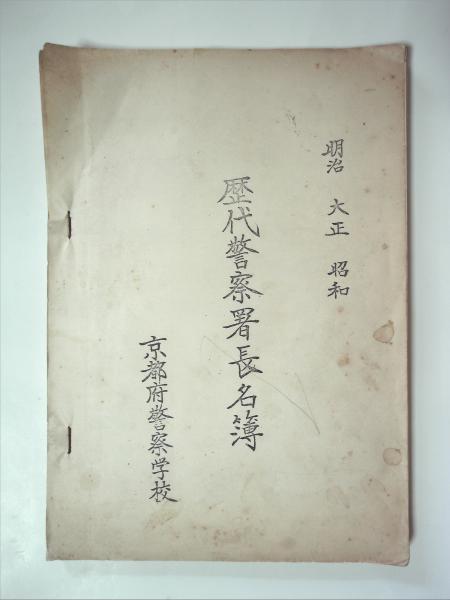 明治　大正　昭和
歴代警察署長名簿
京都府警察学校